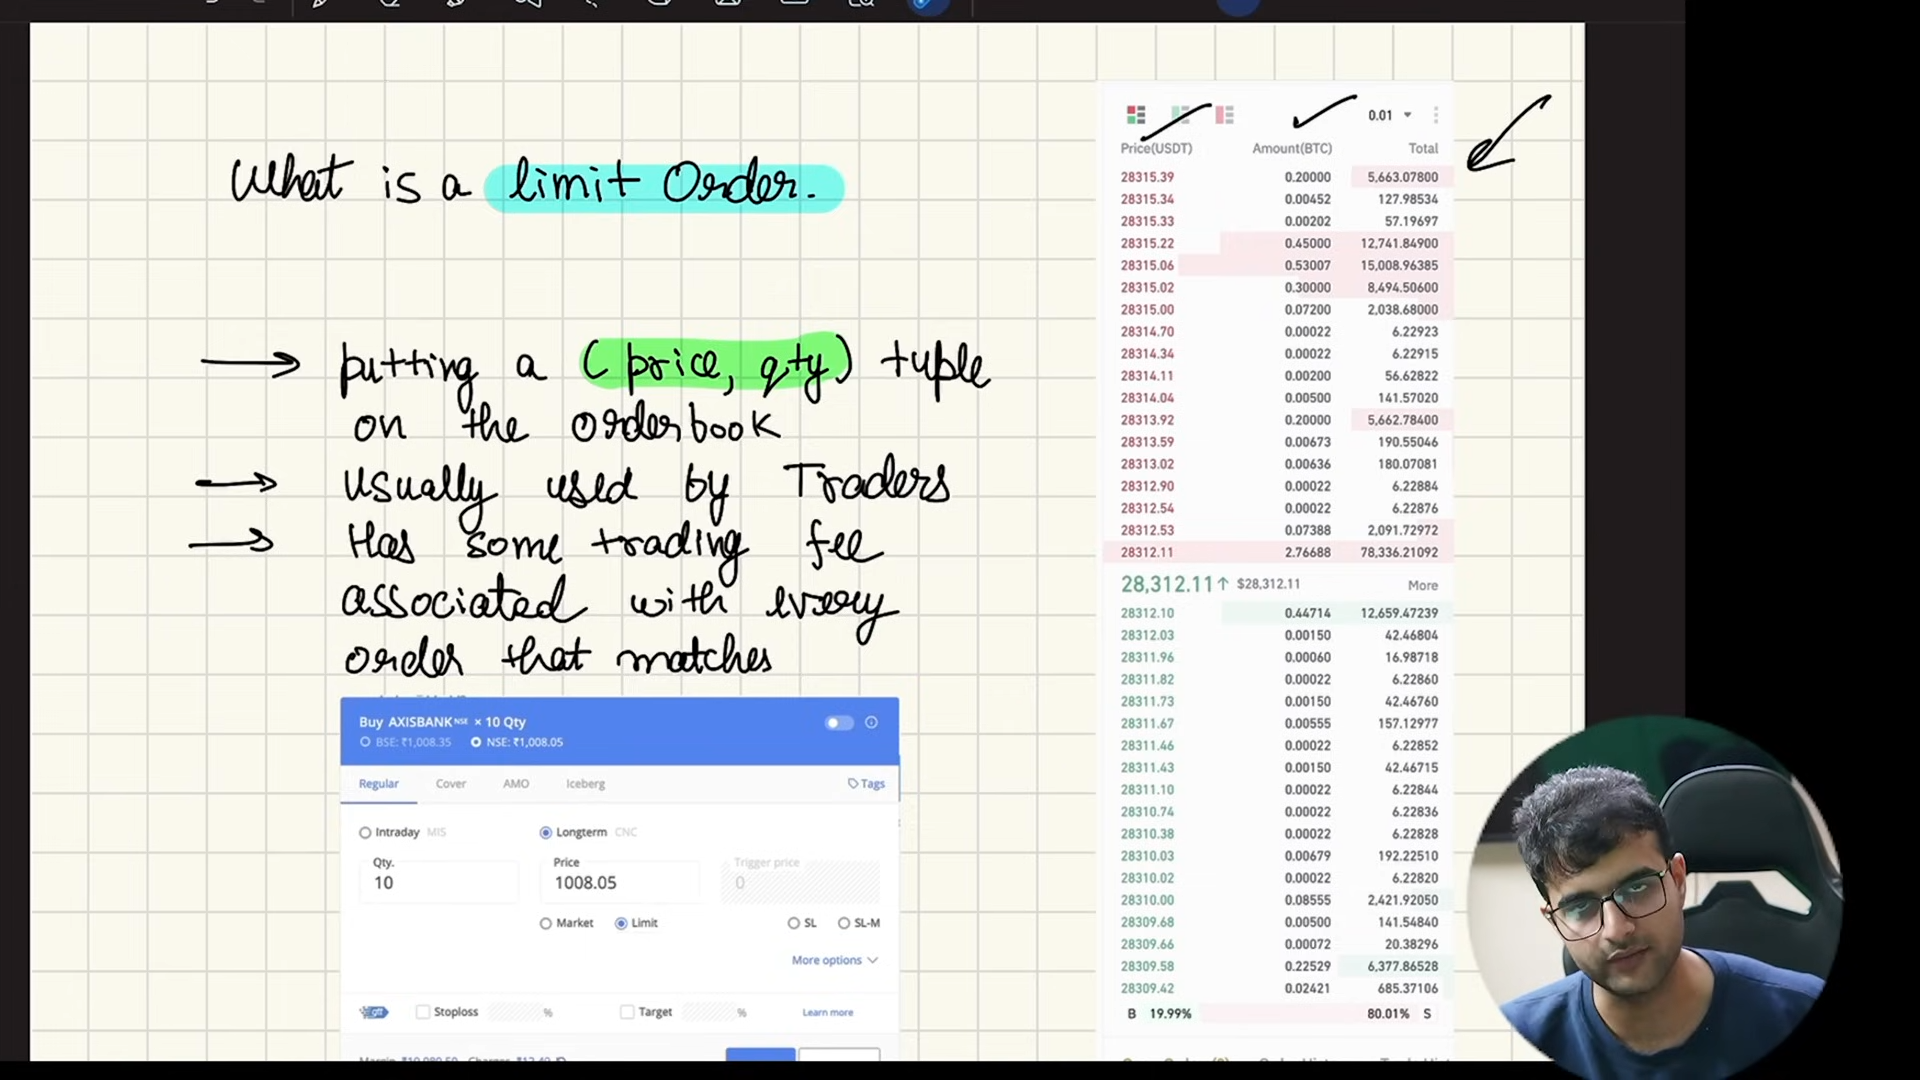 What is a limit Order.
putting a (price, qty) tuple
on the orderbook
Usually used by Traders
Has some trading fee
associated with every
order that matches
Buy AXISBANK NSE × 10 Qty
BSE: ₹1,008.35 NSE: ₹1,008.05
Regular Cover AMO Iceberg Tags
Intraday MIS Longterm CNC
Qty. Price Trigger price
10 1008.05 0
Market Limit SL SL-M
More options
Stoploss % Target % Learn more
0.01
Price(USDT) Amount(BTC) Total
28315.39 0.20000 5,663.07800
28315.34 0.00452 127.98534
28315.33 0.00202 57.19697
28315.22 0.45000 12,741.84900
28315.06 0.53007 15,008.96385
28315.02 0.30000 8,494.50600
28315.00 0.07200 2,038.68000
28314.70 0.00022 6.22923
28314.34 0.00022 6.22915
28314.11 0.00200 56.62822
28314.04 0.00500 141.57020
28313.92 0.20000 5,662.78400
28313.59 0.00673 190.55046
28313.02 0.00636 180.07081
28312.90 0.00022 6.22884
28312.54 0.00022 6.22876
28312.53 0.07388 2,091.72972
28312.11 2.76688 78,336.21092
28,312.11↑ $28,312.11 More
28312.10 0.44714 12,659.47239
28312.03 0.00150 42.46804
28311.96 0.00060 16.98718
28311.82 0.00022 6.22860
28311.73 0.00150 42.46760
28311.67 0.00555 157.12977
28311.46 0.00022 6.22852
28311.43 0.00150 42.46715
28311.10 0.00022 6.22844
28310.74 0.00022 6.22836
28310.38 0.00022 6.22828
28310.03 0.00679 192.22510
28310.02 0.00022 6.22820
28310.00 0.08555 2,421.92050
28309.68 0.00500 141.54840
28309.66 0.00072 20.38296
28309.58 0.22529 6,377.86528
28309.42 0.02421 685.37106
B 19.99% 80.01% S